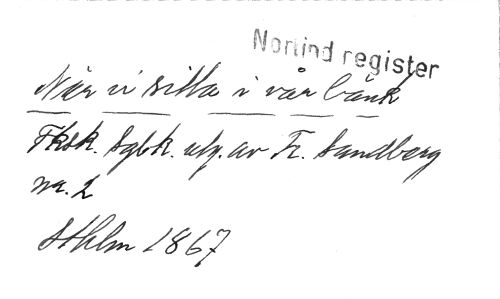 Norlind register
När vi sitta i vår bänk
Fksk. Sgbk. utg. av Fr. Sandberg
nr. 2
Sthlm 1867